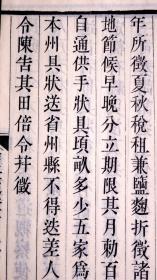 年所徵夏秋稅租兼鹽麴折徵諸
地節候早晚分立期限其月勑百
自通供手狀具頃畝多少五家爲
本州具狀送省州縣不得迭差人
令陳告其田倍令并徵